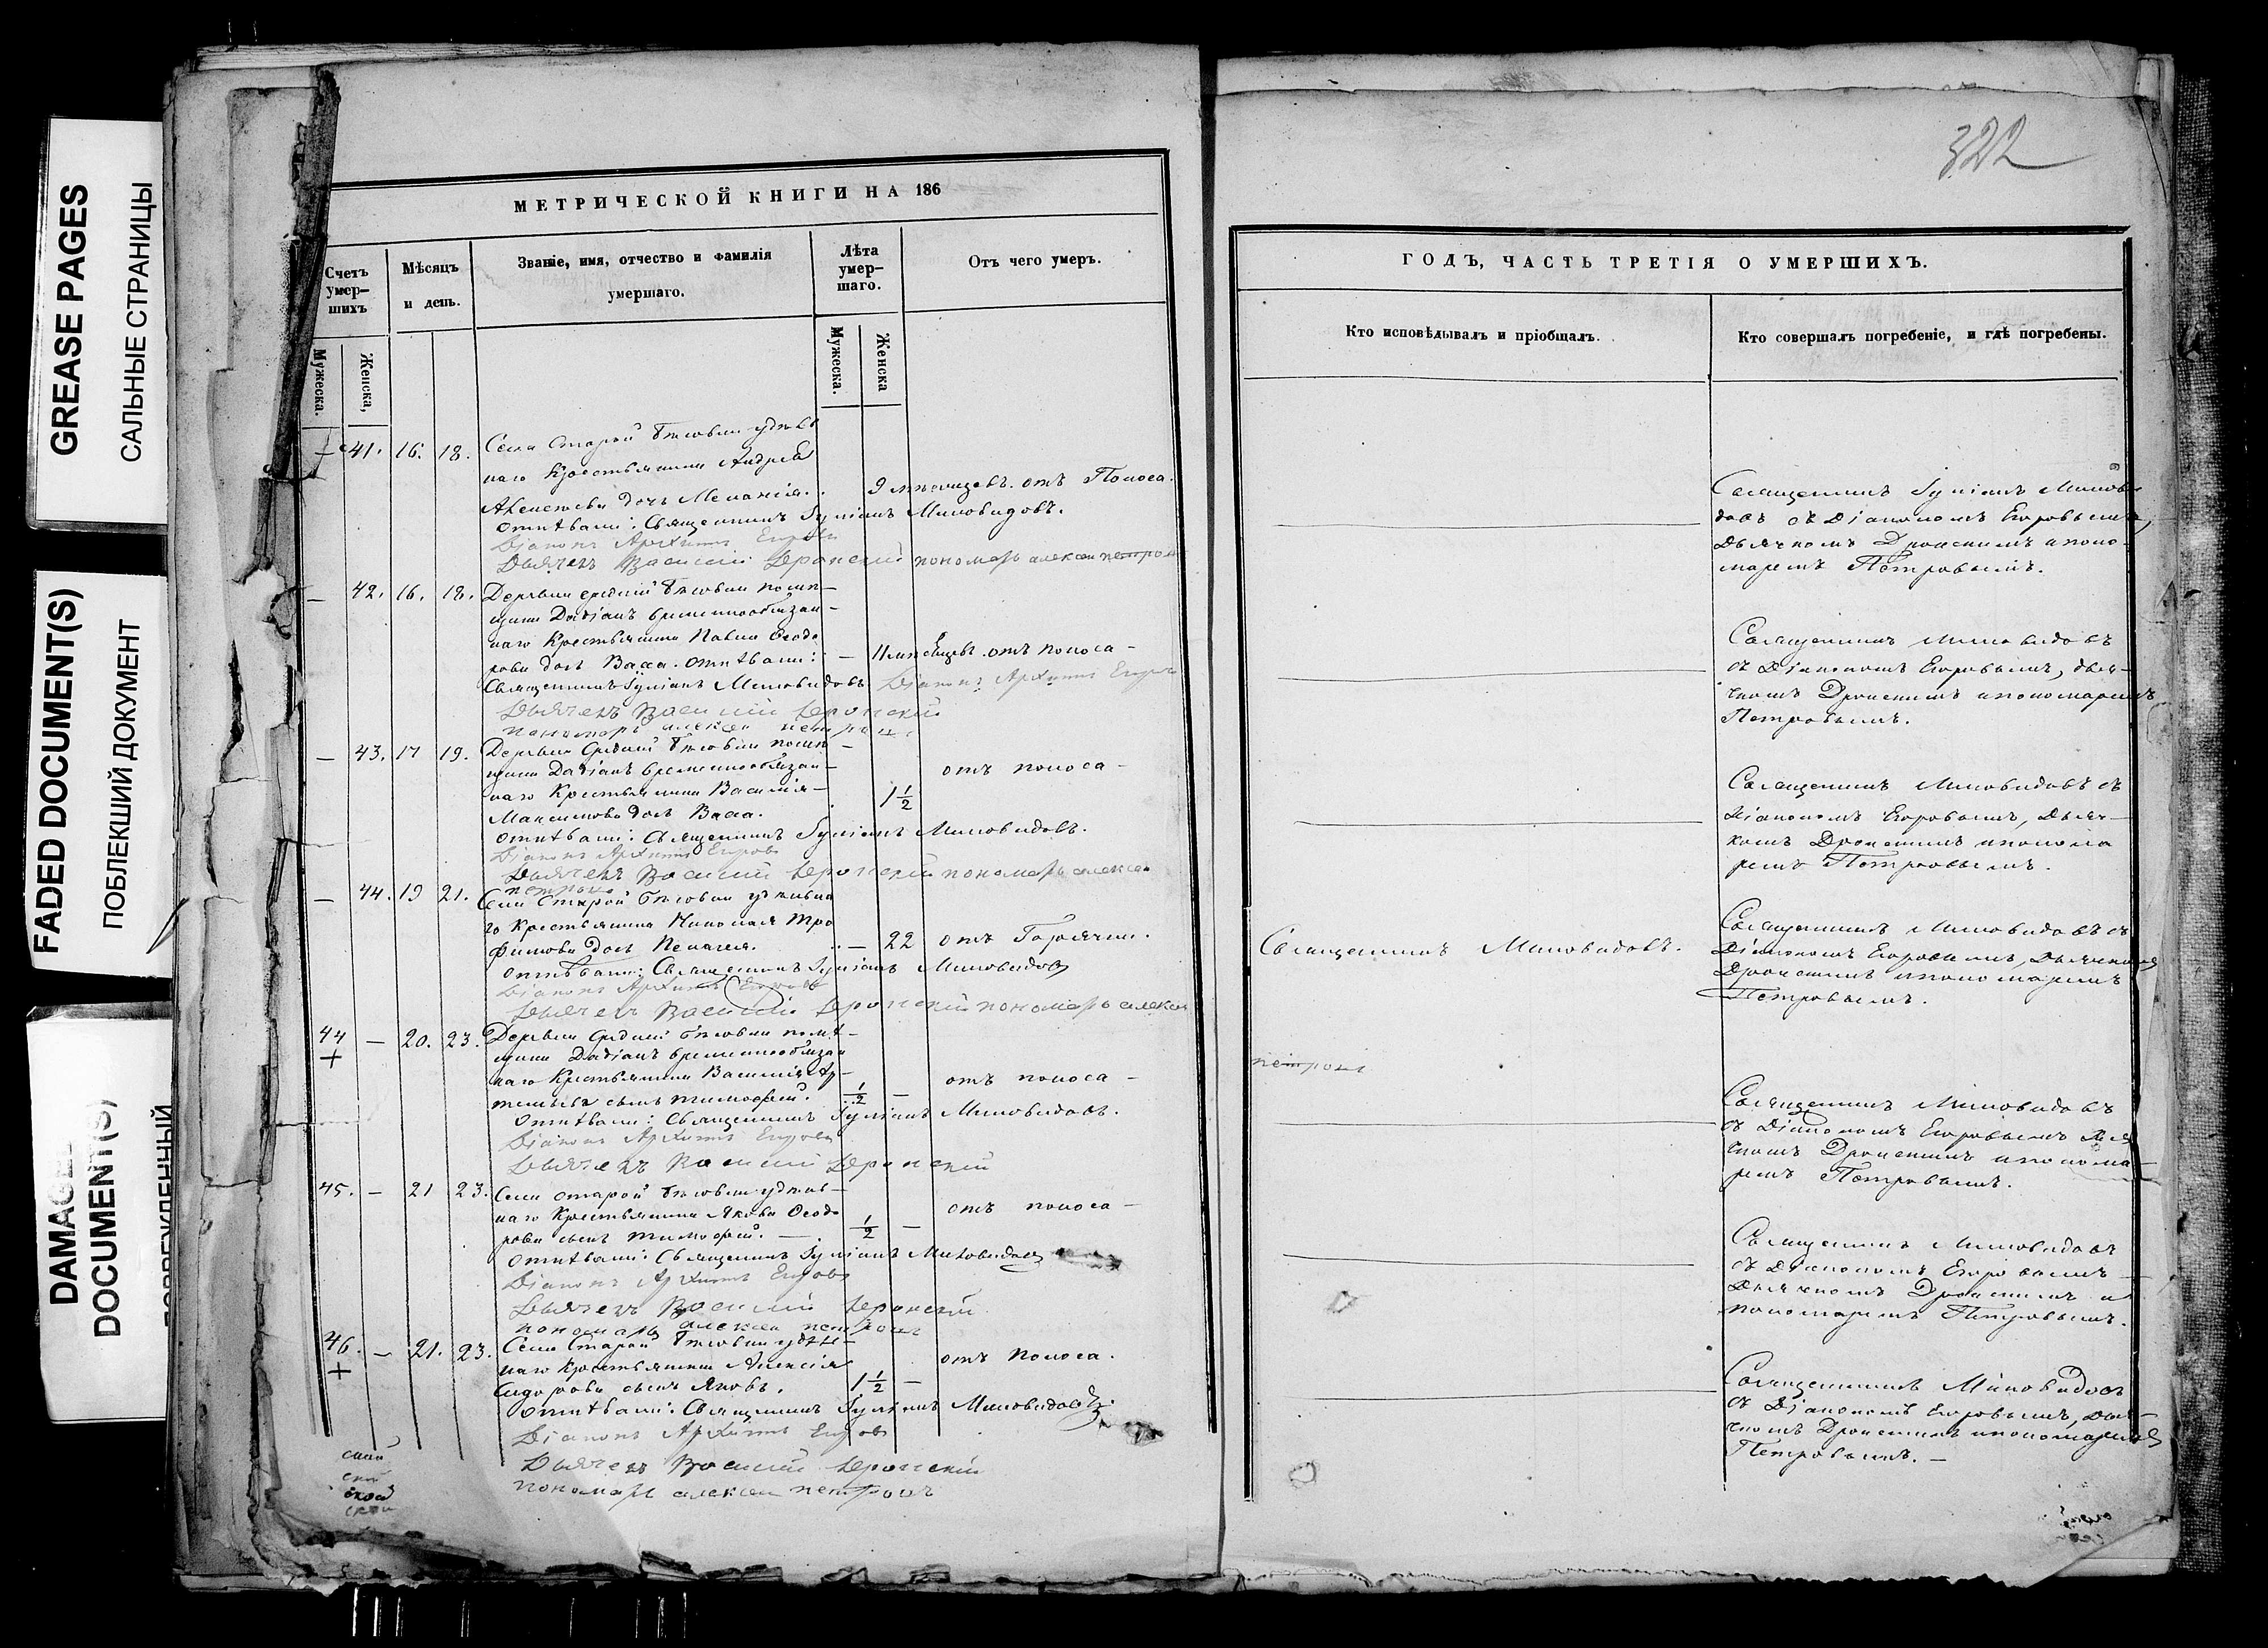 GREASE PAGES
САЛЬНЫЕ СТРАНИЦЫ
FADED DOCUMENT(S)
ПОБЛЕКШИЙ ДОКУМЕНТ
DAMAGED
DOCUMENT(S)
МЕТРИЧЕСКОЙ КНИГИ НА 186
Счетъ умер-шихъ
Мѣсяцъ и день.
Званіе, имя, отчество и фамилія умершаго.
Лѣта умер-шаго.
Отъ чего умеръ.
Мужеска.
Женска,
Мужеска.
Женска
— 41. 16. 18. Села Старой
наго Крестьянина Андрея
дочь Меланія. 9 мѣсяцевъ. отъ Поноса.
Отпѣвали: Священникъ Іуліанъ Миловидовъ.
Діаконъ Архипъ Егоровъ
Дьячекъ Василій пономарь алексей петровъ
— 42. 16. 18. Деревни средней помѣ-
щицы Дадіанъ временнообязан-
наго Крестьянина Павла Ѳедо
рова дочь Васса. отпѣвали: — 11 мѣсяцевъ. отъ поноса —
Священникъ Іуліанъ Миловидовъ Діаконъ Архипъ Егоровъ
Дьячекъ Василій
пономарь алексей петровъ
— 43. 17 19. Деревни Средней помѣ-
щицы Дадіанъ временнообязан-
наго Крестьянина Василія — 1 1/2 отъ поноса —
Максимова дочь Васса.
Отпѣвали: Священникъ Іуліанъ Миловидовъ.
Діаконъ Архипъ Егоровъ
Дьячекъ Василій пономарь алексей
петровъ
— 44. 19 21. Села Старой удѣльна
го Крестьянина Николая Тро
фимова дочь Пелагея. — 22 отъ Горячки.
Отпѣвали: Священникъ Іуліанъ Миловидовъ
Діаконъ Архипъ Егоровъ
Дьячекъ Василій пономарь алексей
44 + — 20. 23. Деревни Средней помѣ-
щицы Дадіанъ временнообязан
наго Крестьянина Василія Ар-
темьева сынъ Тимофей. 1/2 — отъ поноса —
Отпѣвали: Священникъ Іуліанъ Миловидовъ.
Діаконъ Архипъ Егоровъ
Дьячекъ Василій
45. — 21 23. Села Старой удѣль-
наго Крестьянина Якова Ѳедо
рова сынъ Тимофей. — 1/2 — отъ поноса —
Отпѣвали: Священникъ Іуліанъ Миловидовъ
Діаконъ Архипъ Егоровъ
Дьячекъ Василій
пономарь алексей петровъ
46. + — 21. 23. Села Старой удѣль-
наго Крестьянина Алексія
Сидорова сынъ Яковъ. 1 1/2 — отъ Поноса.
Отпѣвали: Священникъ Іуліанъ Миловидовъ
Діаконъ Архипъ Егоровъ
Дьячекъ Василій
пономарь алексей петровъ
322
ГОДЪ, ЧАСТЬ ТРЕТІЯ О УМЕРШИХЪ.
Кто исповѣдывалъ и пріобщалъ.
Кто совершалъ погребеніе, и гдѣ погребены.
Священникъ Іуліанъ Милови
довъ съ Діакономъ Егоровымъ,
Дьячкомъ и поно-
маремъ Петровымъ.
Священникъ Миловидовъ
съ Діакономъ Егоровымъ, дья-
чкомъ и пономаремъ
Петровымъ.
Священникъ Миловидовъ съ
Діакономъ Егоровымъ, Дьяч-
комъ и понома
ремъ Петровымъ.
Священникъ Миловидовъ.
Священникъ Миловидовъ съ
Діакономъ Егоровымъ, Дьячкомъ
и пономаремъ
Петровымъ.
петровъ
Священникъ Миловидовъ
съ Діакономъ Егоровымъ Дья
чкомъ и понома-
ремъ Петровымъ.
Священникъ Миловидовъ
съ Діакономъ Егоровымъ
Дьячкомъ и
пономаремъ Петровымъ.
Священникъ Миловидовъ
съ Діакономъ Егоровымъ, Дья-
чкомъ и пономаремъ
Петровымъ. —